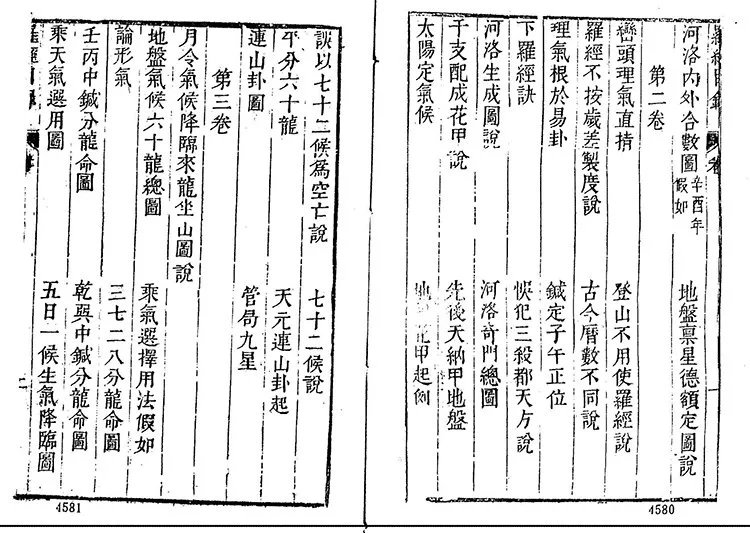 河洛內外合數圖 辛酉年假如 地盤禀星德額定圖說
第二卷
巒頭理氣直捐 登山不用使羅經說
羅經不按歲差製度說 古今曆數不同說
理氣根於易卦 鍼定子午正位
下羅經訣 快犯三殺都天方說
河洛生成圖說 河洛奇門總圖
干支配成花甲說 先後天納甲地盤
太陽定氣候 地花甲起例
4580
誤以七十二候爲空亡說 七十二候說
平分六十龍 天元連山卦起
連山卦圖 管局九星
第三卷
月令氣候降臨來龍坐山圖說
地盤氣候六十龍總圖 乘氣選擇用法假如
論形氣 三七二八分龍命圖
壬丙中鍼分龍命圖 乾巽中鍼分龍命圖
乘天氣選用圖 五日一候生氣降臨圖
4581